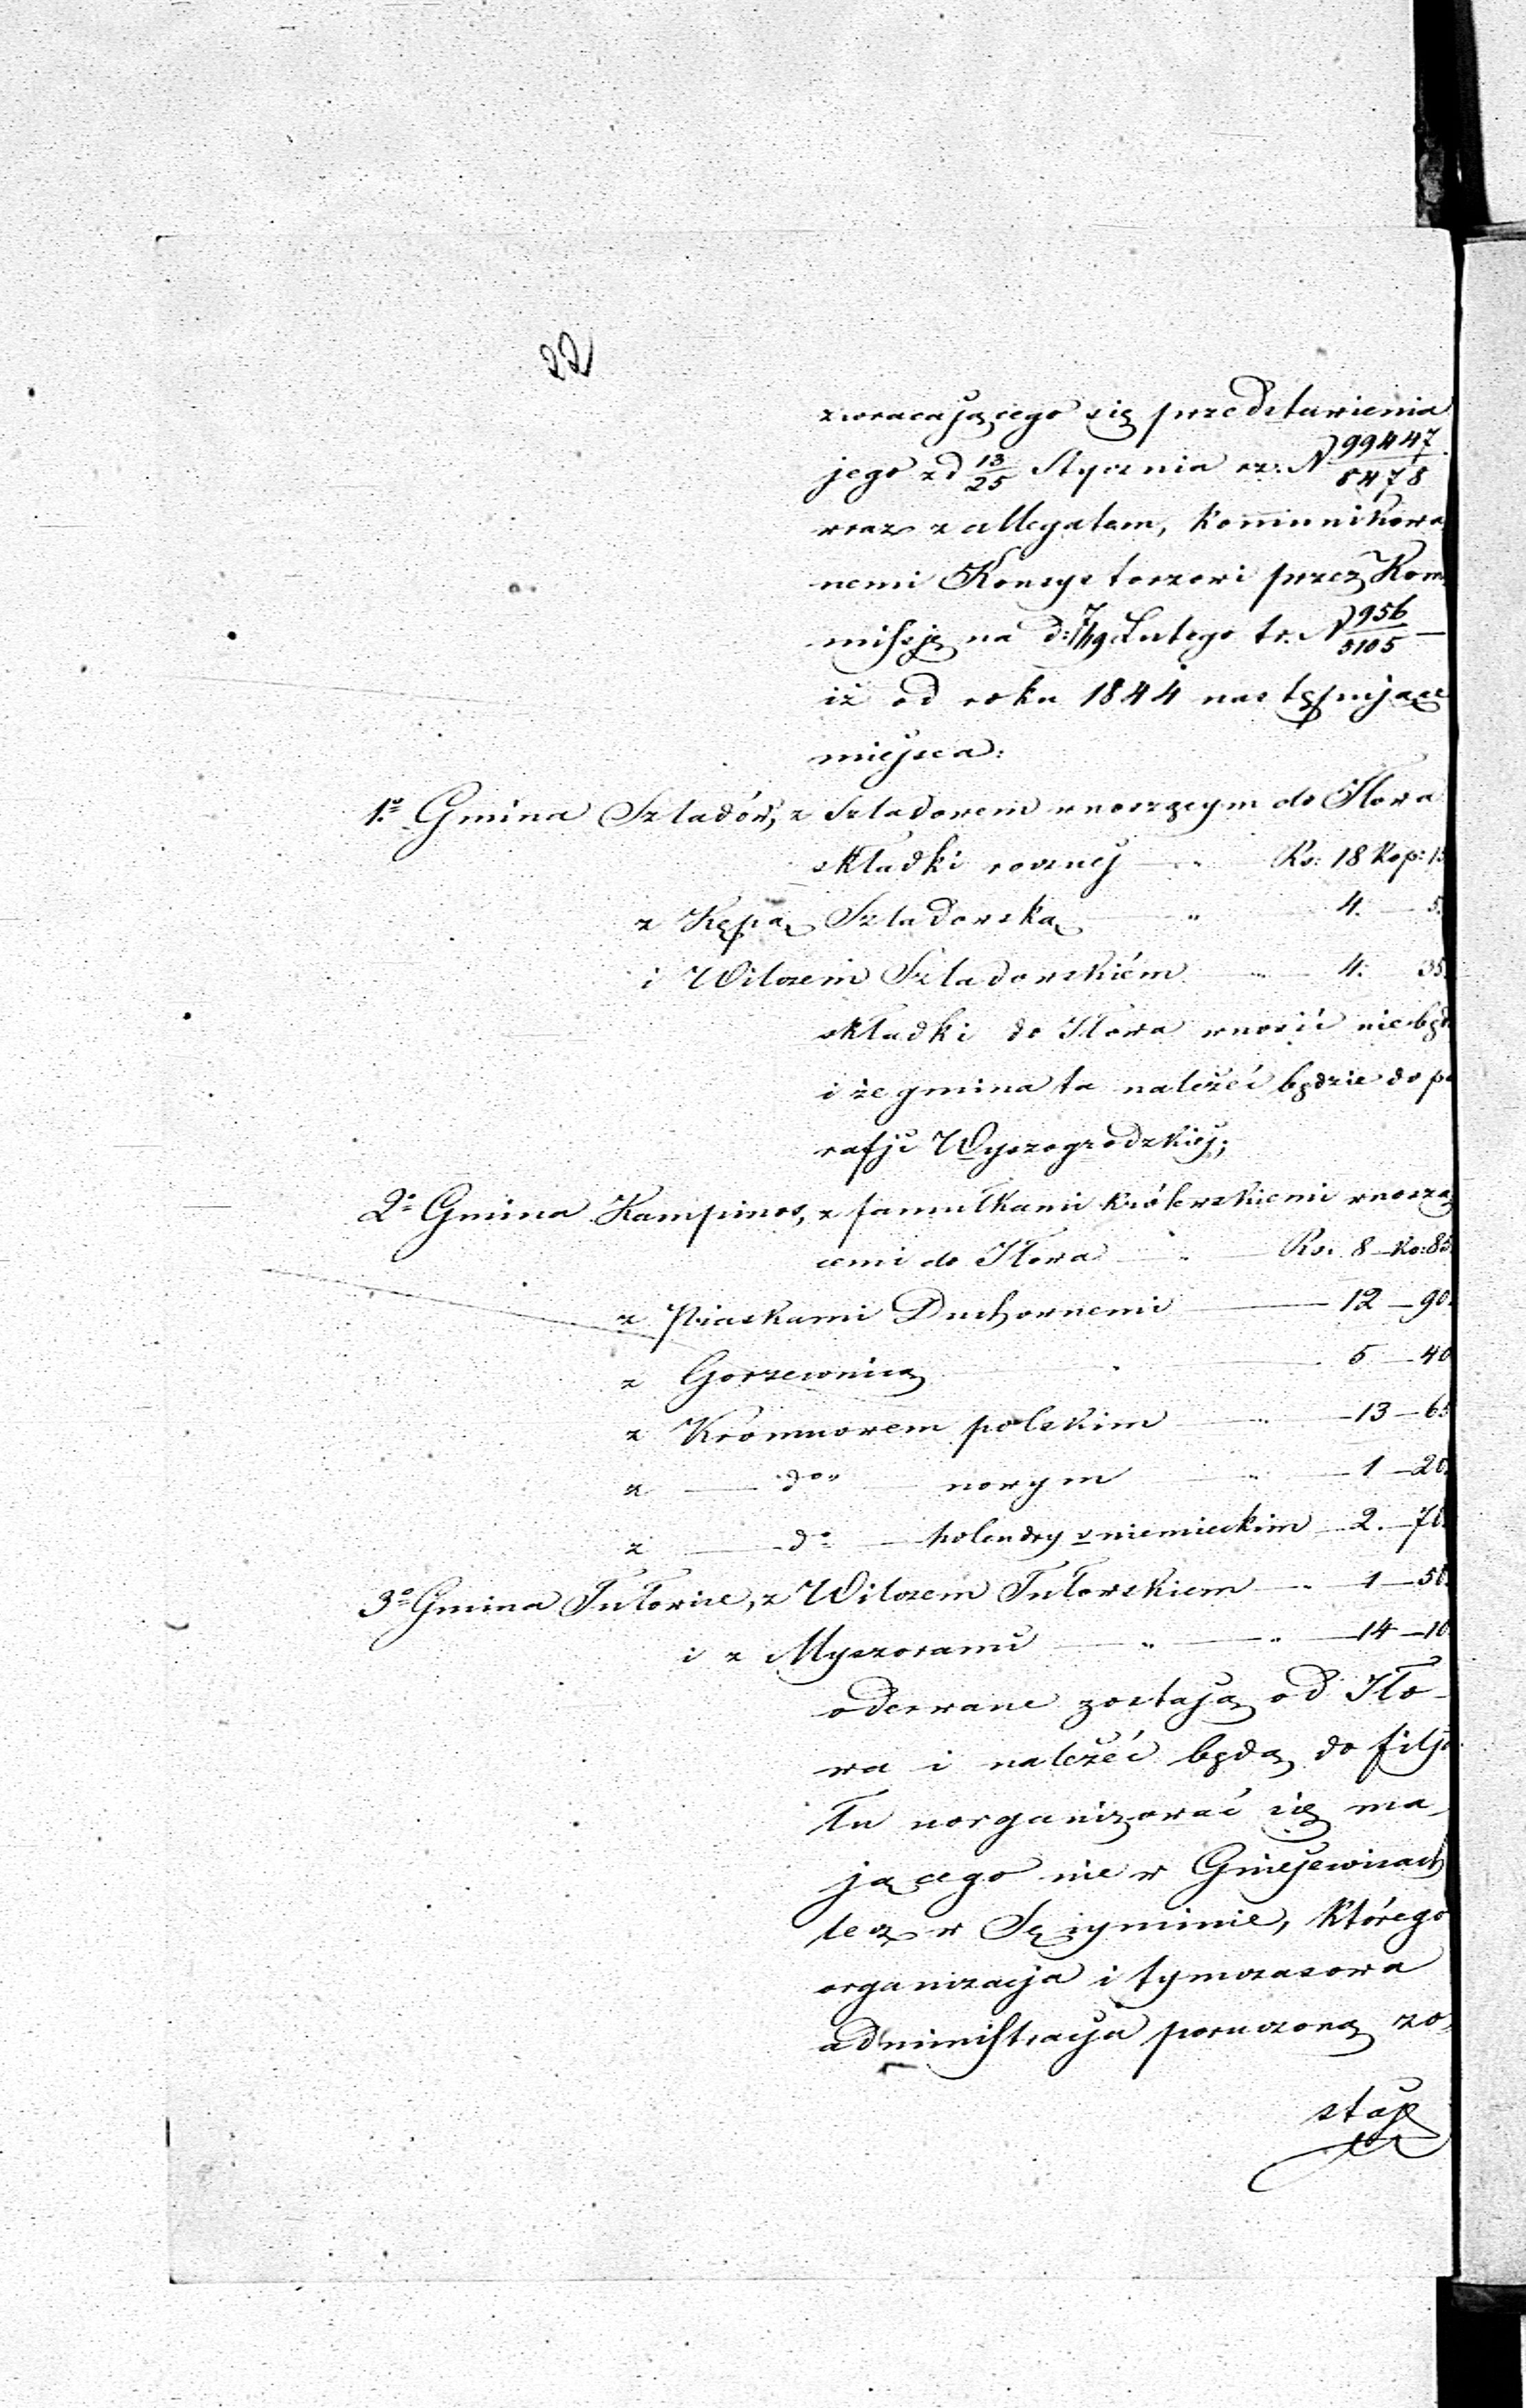 22
zwracającego się przedstawienia
jego z d 13/25 Stycznia rz: N 99447/8478
wraz z allegatam, kommunikowa
nemi Konsystorzowi przez Kom
missję na d: 7/19 Lutego tr. N 956/5105 —
iż od roku 1844 następujące
miejsca:
1o Gmina Szladów, z Szladowem wnoszącym do Iłowa
składki rocznej — „ — Rs: 18 Kop: 15
z Kępą Szladowską „ 4. — 5.
i Wilczem Szladowskiém „ 4: 35.
składki do Iłowa wnosić nie będ
i że gmina ta należéć będzie do pa
rafji Wyszogrodzkiéj;
2o Gmina Kampinos, z famułkami królewskiemi wnoszą
cemi do Iłowa „ Rs: 8 — Ko: 85.
z Piaskami Duchownemi — 12 — 90.
z Gorzewnicą „ 5 — 40
z Kromnowem polskim „ — 13 — 65
z — do „ — nowym „ — 1 — 20.
z — do — holendry v niemieckim — 2. — 70.
3o Gmina Tułowice, z Wilczem Tułowskiem — „ 1 — 50.
i z Myszorami — „ — „ — 14 — 10
oderwane zostają od Iło-
wa i należéć będą do filja
łu uorganizować się ma-
jącego nie w Gniejewicach
lecz w Secyminie, którego
organizacja i tymczasowa
administracja poruczoną zo-
staje